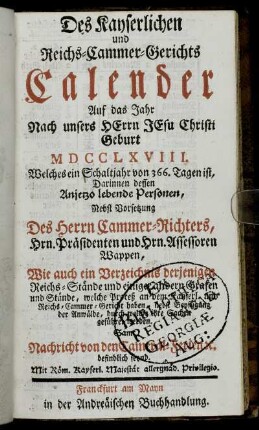 Des Kayserlichen
und
Reichs-Cammer-Gerichts
Calender
Auf das Jahr
Nach unsers HErrn JEsu Christi
Geburt
MDCCLXVIII.
Welches ein Schaltjahr von 366. Tagen ist,
Darinnen dessen
Anjetzo lebende Personen,
Nebst Vorsetzung
Des Herrn Cammer-Richters,
Hrn. Präsidenten und Hrn. Assessoren
Wappen,
Wie auch ein Verzeichnis derjenigen
Reichs-Stände und einiger andern Grafen
und Stände, welche Proceß an dem Kayserl. und
Reichs-Cammer-Gericht haben, nebst
der Anwälde, durch welche ihre Sachen
geführet werden.
Samt
Nachricht von den
befindlich seynd.
Mit Röm. Kayserl. Majestät allergnäd. Privilegio.
Franckfurt am Mayn
in der Andreäischen Buchhandlung.
REGIAE
GEORGIAE